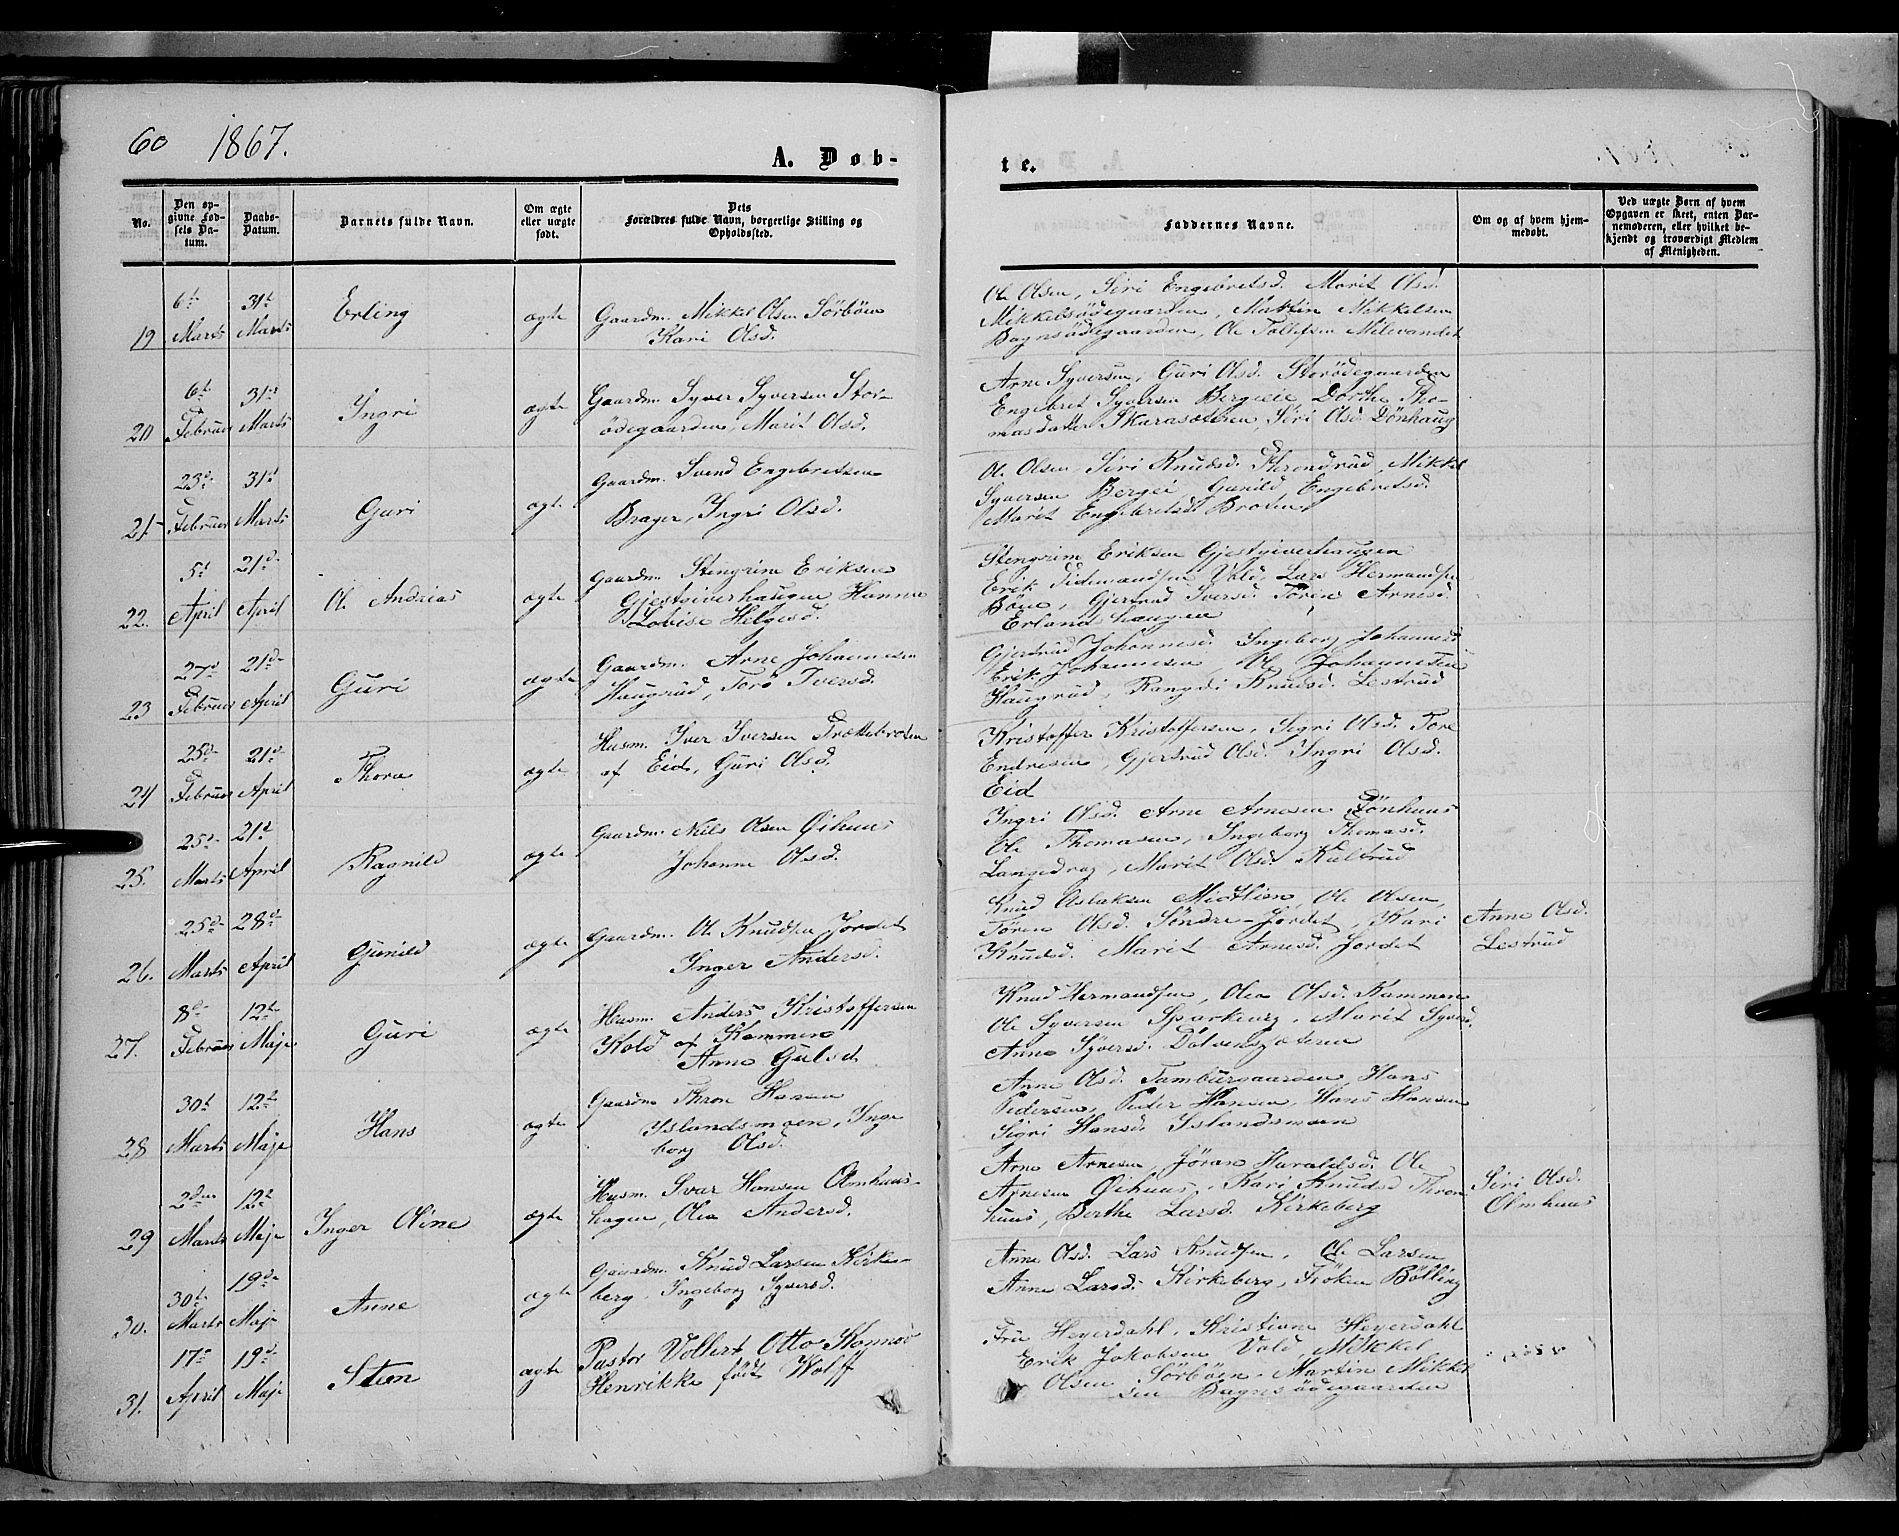 60 1867.
A. Døb-
te.
No.
Den op-
givne Fød-
sels Da-
tum.
Daabs-
Datum.
Barnets fulde Navn.
Om ægte
eller uægte
født.
Dets
Forældres fulde Navn, borgerlige Stilling og
Opholdssted.
Faddernes Navne.
Om og af hvem hjem-
medøbt.
Ved uægte Børn af hvem
Opgaven er skeet, enten Bar-
nemoderen, eller hvilket be-
kjendt og troværdigt Medlem
af Menigheden.
19 6t Marts 31t Marts Erling ægte
Gaardm. Mikkel Olsen Sörböen
Kari Olsd.
Ole Olsen, Siri Engebretsd. Marit Olsd.
Mikkelsödegaarden, Martin Mikkelsen
Bagnsödegaarden, Ole Tollefsen Milevandet
20 6t Februar 31t Marts Ingri ægte
Gaardm. Syver Syversen Stor-
ödegaarden, Marit Olsd.
Arne Syversen, Guri Olsd. Storödegaarden
Engebret Syversen Bergeie Dorthe Tho-
masdatter Skarasætren, Siri Olsd Dönhaug
21 23d Februar 31t Marts Guri ægte
Gaardm. Svend Engebretsen
Brager, Ingri Olsd.
Ole Olsen Siri Knudsd. Throndrud, Mikkel
Syversen Bergei, Gunild Engebretsd.
Marit Engebretsd Broten,
22. 5t April 21d April Ole Andreas ægte
Gaardm. Stengrim Eriksen
Gjestgiverhaugen Hanna
Lovise Helgesd.
Stengrim Eriksen Gjestgiverhaugen
Erik Tidemandsen Vold, Lars Hermandsen
Böen, Gjertrud Iversd. Toren Arnesd.
Erlandhaugen
23 27d Februar 21d April Guri ægte
Gaardm. Arne Johannesen
Haugrud, Torö Iversd.
Gjertrud Johannesd. Ingeborg Johannesd
Erik Johannesen, Ole Johannesen
Haugrud, Rangdi Knudsd. Lestrud
24 25d Februar 21d April Thora ægte
Husm. Iver Iversen Trættebroten
af Eid, Guri Olsd.
Kristoffer Kristoffersen, Sigri Olsd. Tore
Endresen, Gjertrud Olsd. Ingri Olsd.
Eid
25. 25d Marts 21d April Ragnild ægte
Gaardm. Niels Olsen Öihuus
Johanne Olsd.
Ingri Olsd. Arne Arnesen Tönhuus
Ole Thomasen, Ingeborg Thomasd.
Langedrag, Marit Olsd. Kultrud
26. 25d Marts 28d April Gunild ægte
Gaardm. Ole Knudsen Jordet
Inger Andersd.
Knud Aslaksen Midtlien, Ole Olsen,
Tören Olsd. Söndre-Jordet, Kari
Knudsd. Marit Arnesd. Jordet
Anne Olsd.
Lestrud
27. 8d Februar 12t Maje Guri ægte
Husm. Anders Kristoffersen
Kold af Kammen
Anne Gulsd
Knud Hermandsen, Olea Olsd. Kammen
Ole Syversen Sparkeng, Marit Syvsd.
Anne Syversd.
28 30t Marts 12t Maje Hans ægte
Gaardm Thron Hansen
Islandsmoen, Inge
borg Olsd.
Anne Olsd. Tamburgaarden Hans
Pedersen, Peder Hansen, Hans Hansen
Sigri Hansd. Islandsmoen
29 2den Marts 12t Maje Inger Oline ægte
Husm. Ivar Hansen Olmhuus-
hagen, Olea Andersd.
Arne Arnesen, Jöran Haraldsd. Ole
Arnesen Öihuus, Kari Knudsd Thron
huus, Berthe Larsd. Kirkeberg
Siri Olsd.
Olmhuus
30. 30t Marts 19d Maje Anne ægte
Gaardm. Knud Larsen Kirke-
berg, Ingeborg Syversd.
Anne Olsd. Lars Knudsen, Ole Larsen
Anne Larsd. Kirkeberg, Fröken Bölling
31. 17d April 19d Maje Sten ægte
Pastor Vollert Otto Konnow
Henrikke födt Wolff
Fru Heyerdahl, Kristiane Heyerdahl
Erik Jakobsen Vold, Mikkel
Olsen Sörböen, Martin Mikkel
sen Bagnsödegaarden